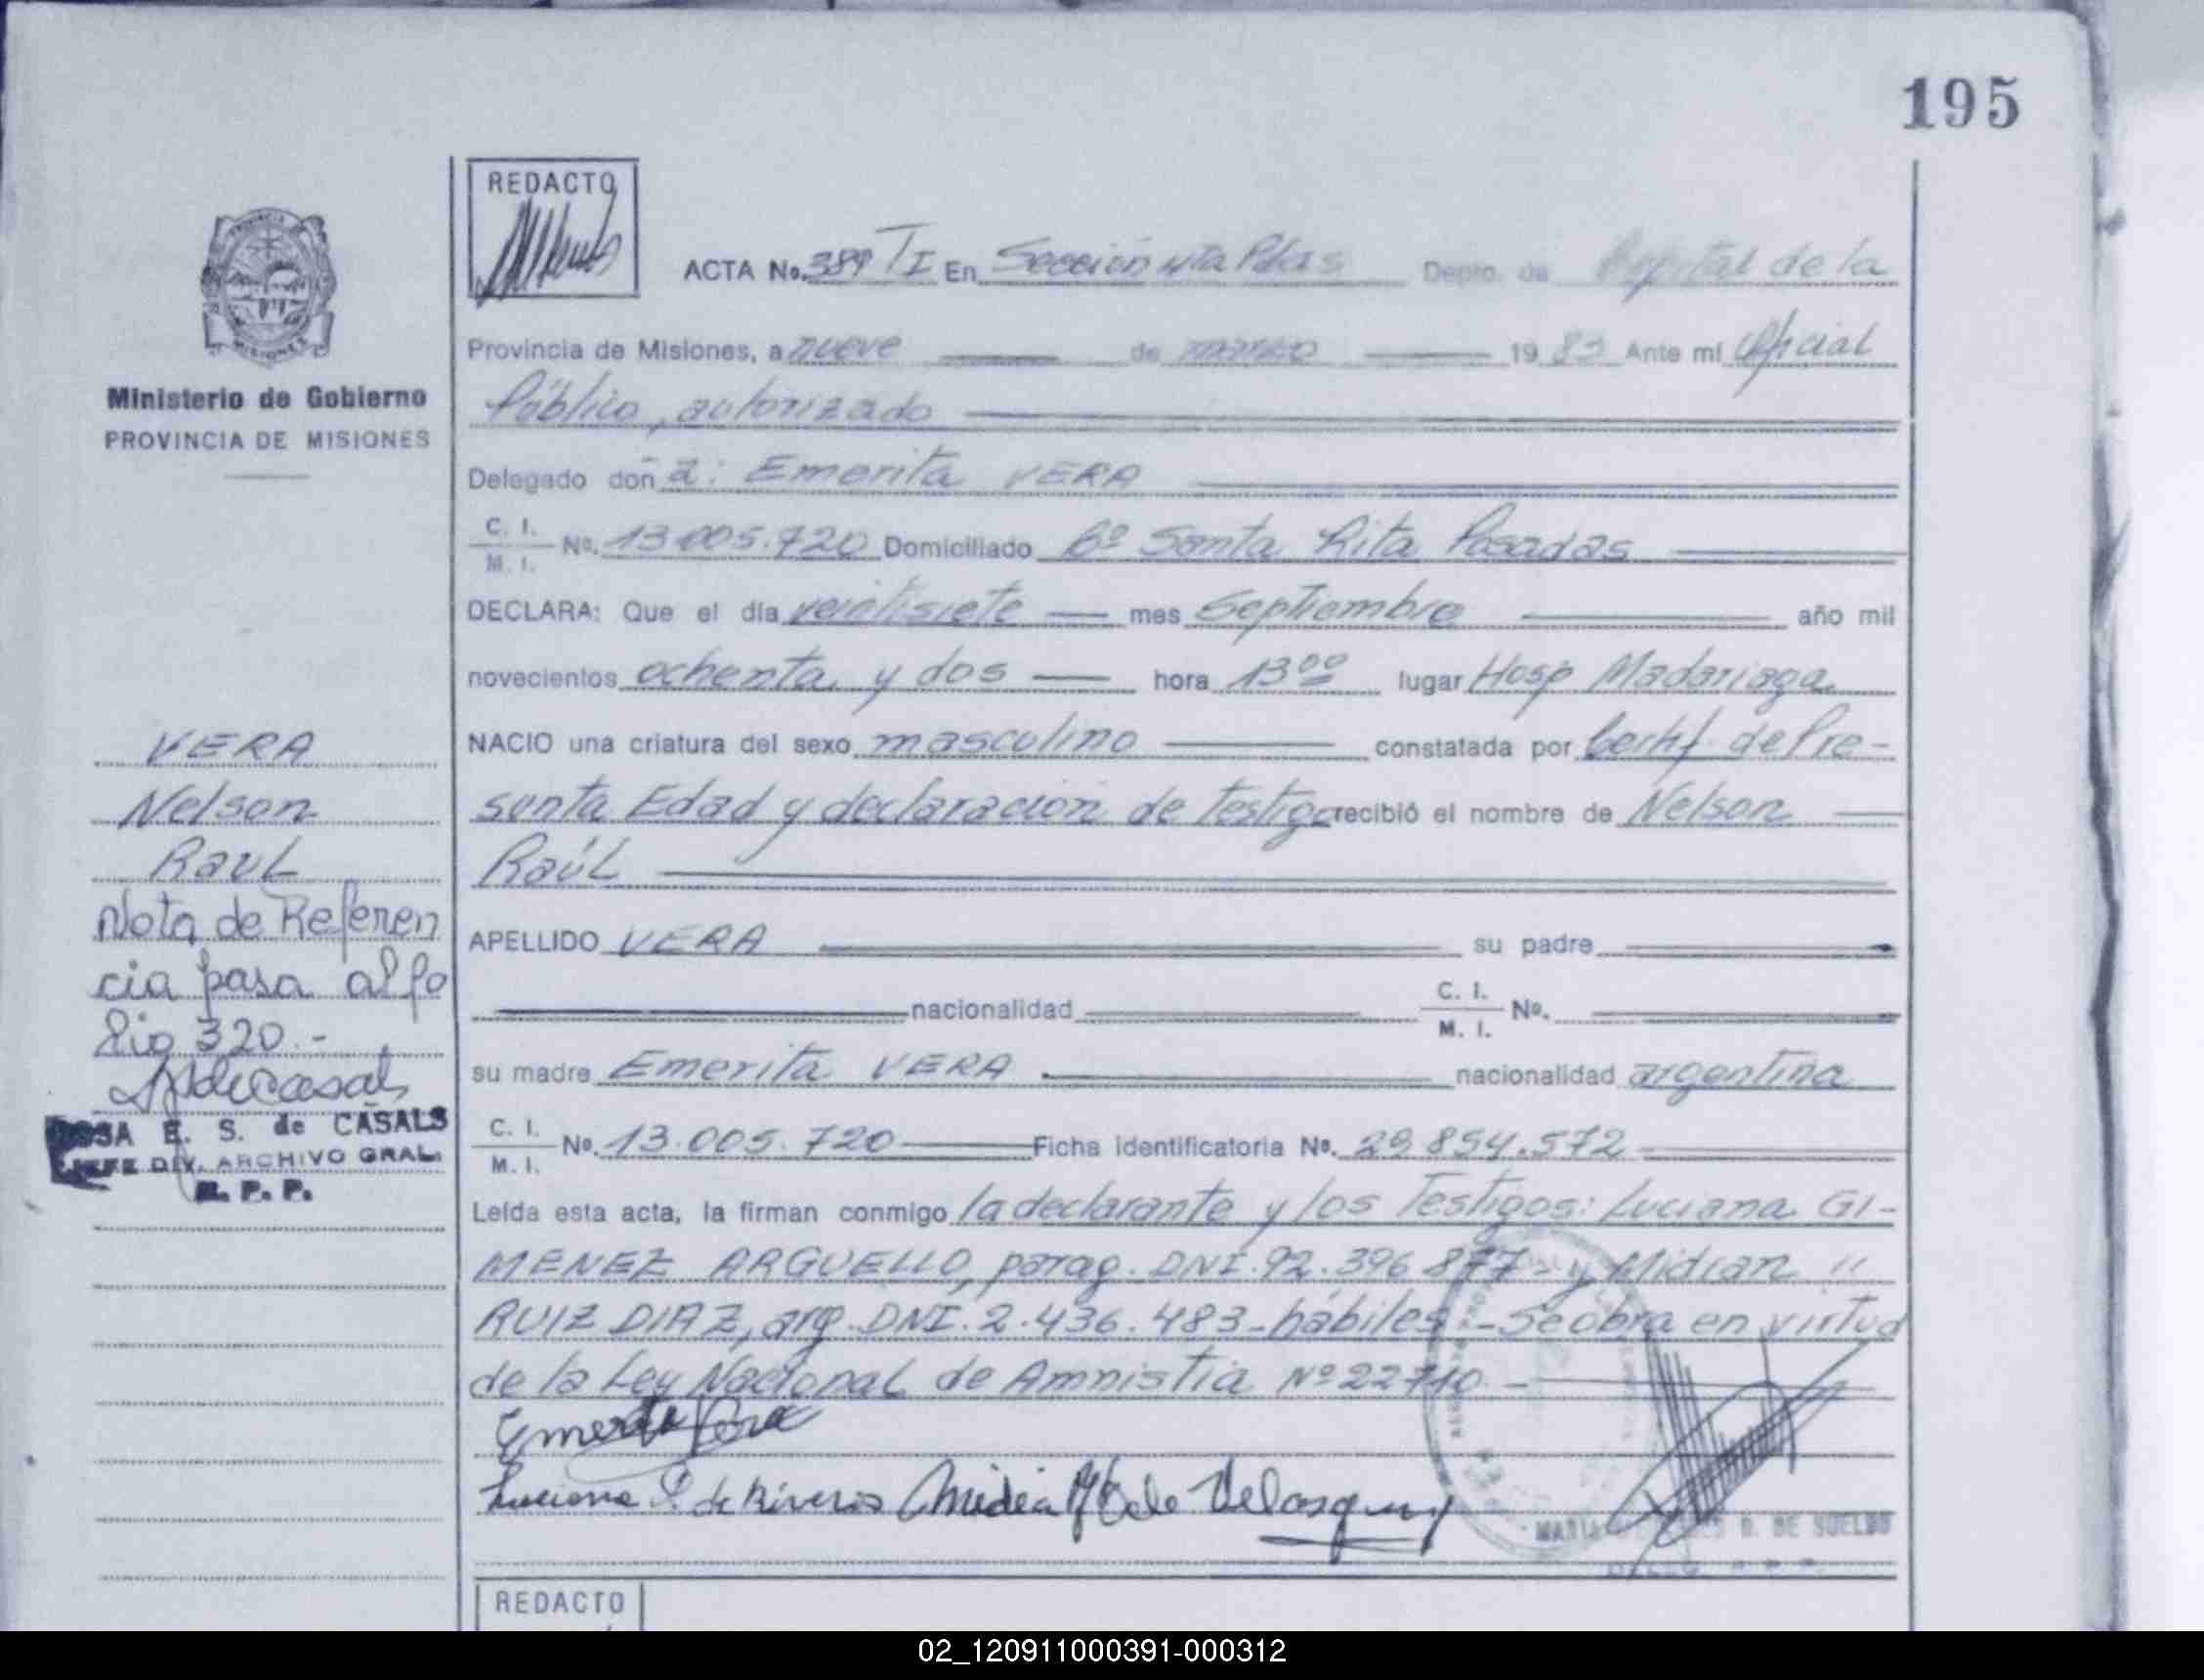 195
REDACTO
ACTA No. 389 TI En Sección 4ta Pdas Depto. de Capital de la
Provincia de Misiones, a nueve de marzo 1983 Ante mí Oficial
Público, autorizado
Delegado doña: Emerita VERA
C. I.
M. I.
No. 13.005.720 Domiciliado Bº Santa Rita Posadas
DECLARA: Que el día veintisiete mes Septiembre año mil
novecientos ochenta y dos hora 13⁰⁰ lugar Hosp Madariaga
NACIO una criatura del sexo masculino constatada por Certif. de Pre-
sunta Edad y declaración de testigo recibió el nombre de Nelson
Raúl
APELLIDO VERA su padre
nacionalidad C. I. M. I. No.
su madre Emerita VERA nacionalidad argentina
C. I.
M. I.
No. 13.005.720 Ficha identificatoria No. 29.854.572
Leída esta acta, la firman conmigo la declarante y los Testigos: Luciana GI-
MENEZ ARGUELLO, parag. DNI. 92.396.877- y Midian "
RUIZ DIAZ, arg. DNI. 2.436.483-hábiles.-Se obra en virtud
de la Ley Nacional de Amnistía Nº 22710.-
Emerita Vera
Luciana G. de Riveros Midian de Velasquez
MARIA D. DE SUELDO
REDACTO
Ministerio de Gobierno
PROVINCIA DE MISIONES
VERA
Nelson
Raul
Nota de Referen
cia pasa al fo
lio 320.-
ROSA E. S. de CASALS
JEFE DIV. ARCHIVO GRAL.
R. P. P.
02_120911000391-000312